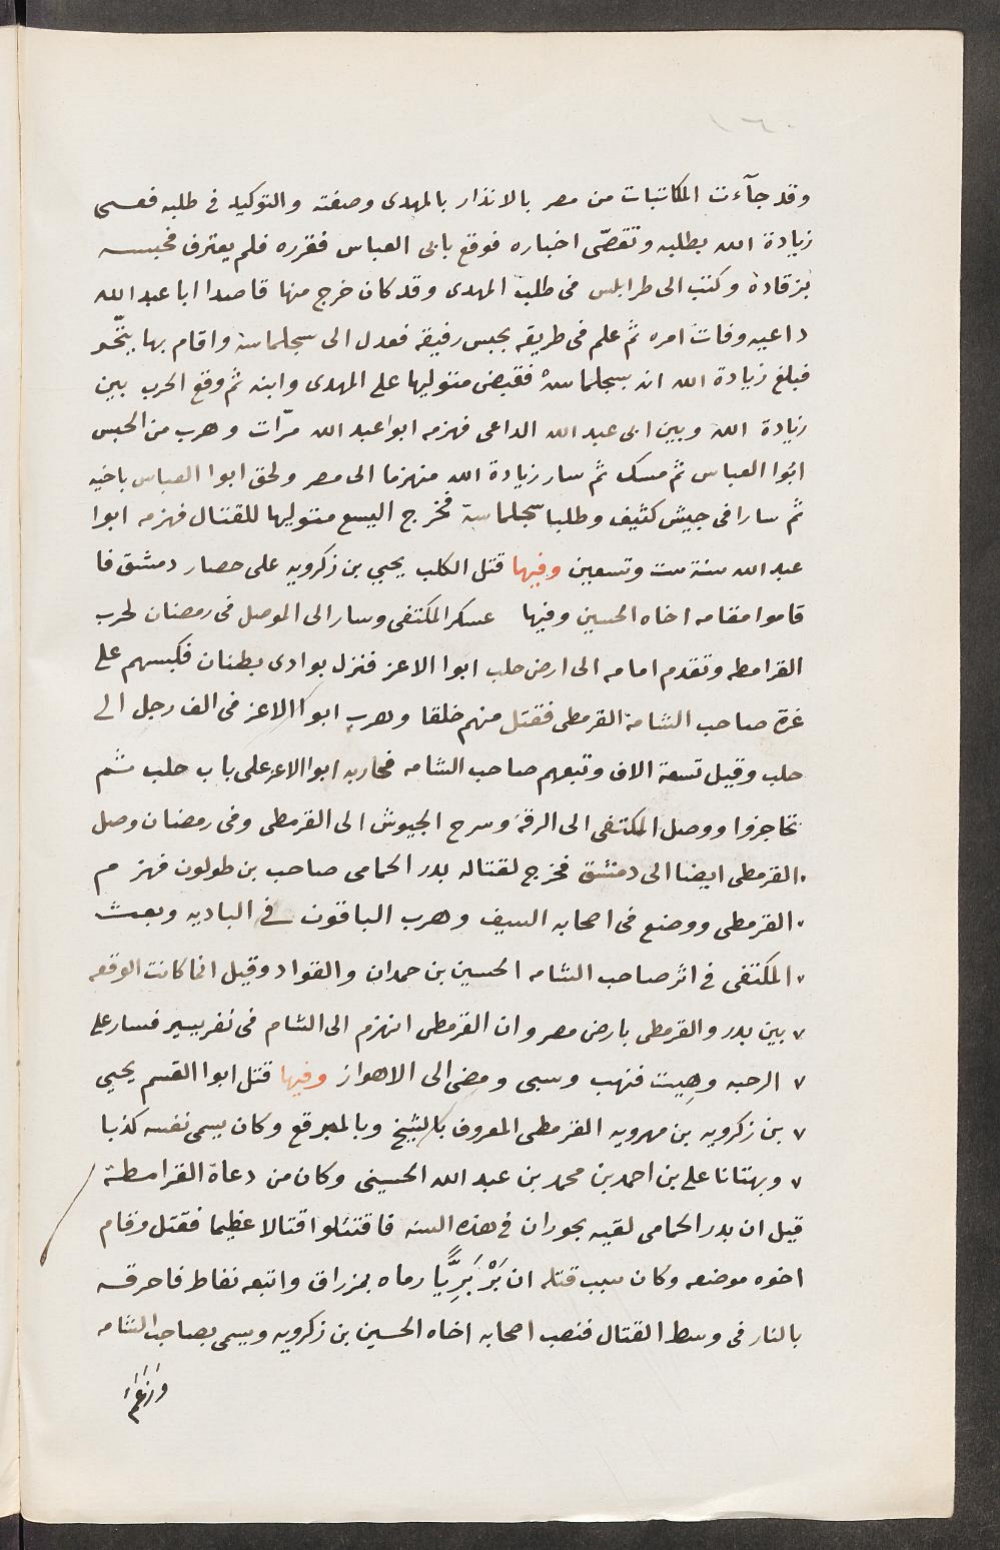 ١٦٠
وقد جآءت المكاتبات من مصر بالانذار بالمهدى وصفته والتوكيد فى طلبه فعسى
زيادة الله بطلبه وتقصّى اخباره فوقع بابى العباس فقرره فلم يعترف فحبسه
بزقادة وكتب الى طرابلس فى طلب المهدى وقد كان خرج منها قاصدا ابا عبد الله
داعيه وفات امره ثم علم فى طريقه بحبس رفيقه فعدل الى سجلماسة واقام بها يتّجر
فبلغ زيادة الله انه بسجلماسة فقبض متوليها على المهدى وابنه ثم وقع الحرب بين
زيادة الله وبين ابى عبد الله الداعى فهزمه ابوا عبد الله مرّات وهرب من الحبس
ابوا العباس ثم مسك ثم سار زيادة الله منهزما الى مصر ولحق ابوا العباس باخيه
ثم سارا فى جيش كثيف وطلبا سجلماسة فخرج اليسع متوليها للقتال فهزمه ابوا
عبد الله سنة ست وتسعين وفيها قتل الكلب يحيى بن زكرويه على حصار دمشق فا
قاموا مقامه اخاه الحسين وفيها عسكر المكتفى وسار الى الموصل فى رمضان لحرب
القرامطه وتقدم امامه الى ارض حلب ابوا الاعز فنزل بوادى بطنان فكبسهم على
غرة صاحب الشامة القرمطى فقتل منهم خلقا وهرب ابوا الاعز فى الف رجل الى
حلب وقيل تسعة الاف وتبعهم صاحب الشامه فحاربه ابوا الاعز على باب حلب ثم
تحاجزوا ووصل المكتفى الى الرقة وسرح الجيوش الى القرمطى وفى رمضان وصل
القرمطى ايضا الى دمشق فخرج لقتاله بدر الحمامى صاحب بن طولون فهزم
القرمطى ووضع فى اصحابه السيف وهرب الباقون فى الباديه وبعث
المكتفى فى اثر صاحب الشامه الحسين بن حمدان والقواد وقيل انما كانت الوقعه
بين بدر والقرمطى بارض مصر وان القرمطى انهزم الى الشام فى نفر يسير فسار على
الرحبه وهِيت فنهب وسبى ومضى الى الاهواز وفيها قتل ابوا القسم يحيى
بن زكرويه بن مهرويه القرمطى المعروف بالشيخ وبالمبرقع وكان يسمى نفسه كذبا
وبهتانا على بن احمد بن محمد بن عبد الله الحسينى وكان من دعاة القرامطة
قيل ان بدر الحمامى لقيه بحوران فى هذه السنه فاقتتلوا قتالا عظيما فقتل وقام
اخوه موضعه وكان سبب قتله ان بَرْبَرِيًّا رماه بمزراق واتبعه نفاط فاحرقه
بالنار فى وسط القتال فنصب اصحابه اخاه الحسين بن زكرويه ويسمى بصاحب الشامه
وزعم